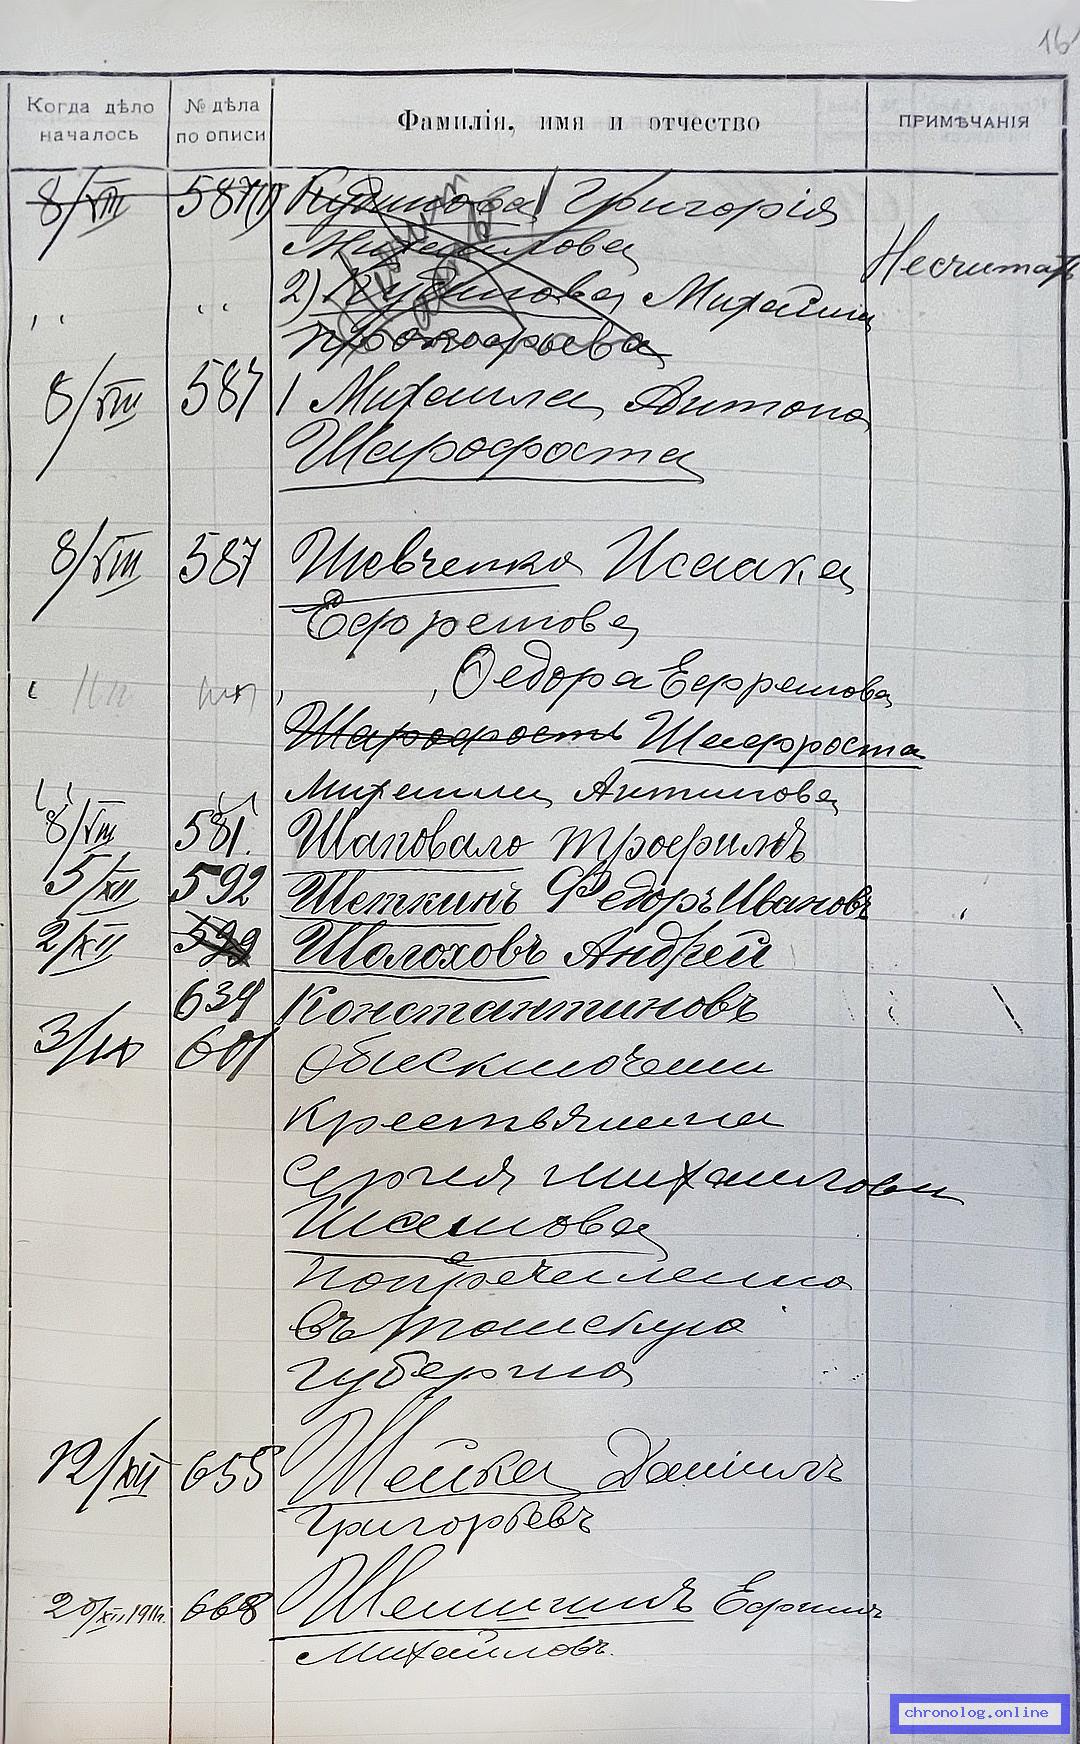 16
Когда дѣло началось
№ дѣла по описи
Фамилія, имя и отчество
ПРИМѢЧАНІЯ
8/VIII 587 Кудинова Григорія
Михаилова
Несчитать
2) Кудинова Михаила
Прокофьева
8/VIII 587 1 Михаила Антона
Шарофоста
8/VIII 587 Шевченко Исаака
Ефремова
Федора Ефремова
Шарофость Шафроста
Михаила Антипова
8/VIII 581. Шаповало Трофимъ
5/XII 592 Шеткинъ Федоръ Ивановъ
2/XII 599 Шолоховъ Андрей
634 Константиновъ
3/IX 601 Объисключении
крестьянина
Сергея Михаилови
Шсамова
попречисленно
въ томскую
губернио
12/XII 655 Шейка Даніилъ
Григорьевъ
20/XII 1911г. 668 Шемшинъ Ефимъ
Михайловъ.
chronolog.online